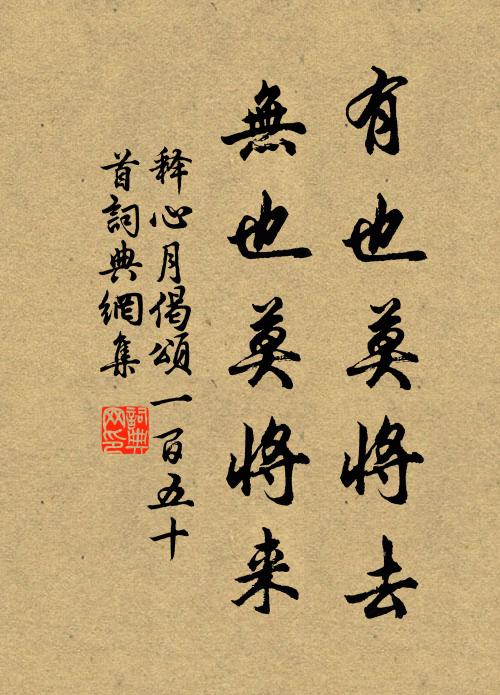 有也莫将去
無也莫将来
释心月偈頌一百五十
首詞典網集
詞典
网印